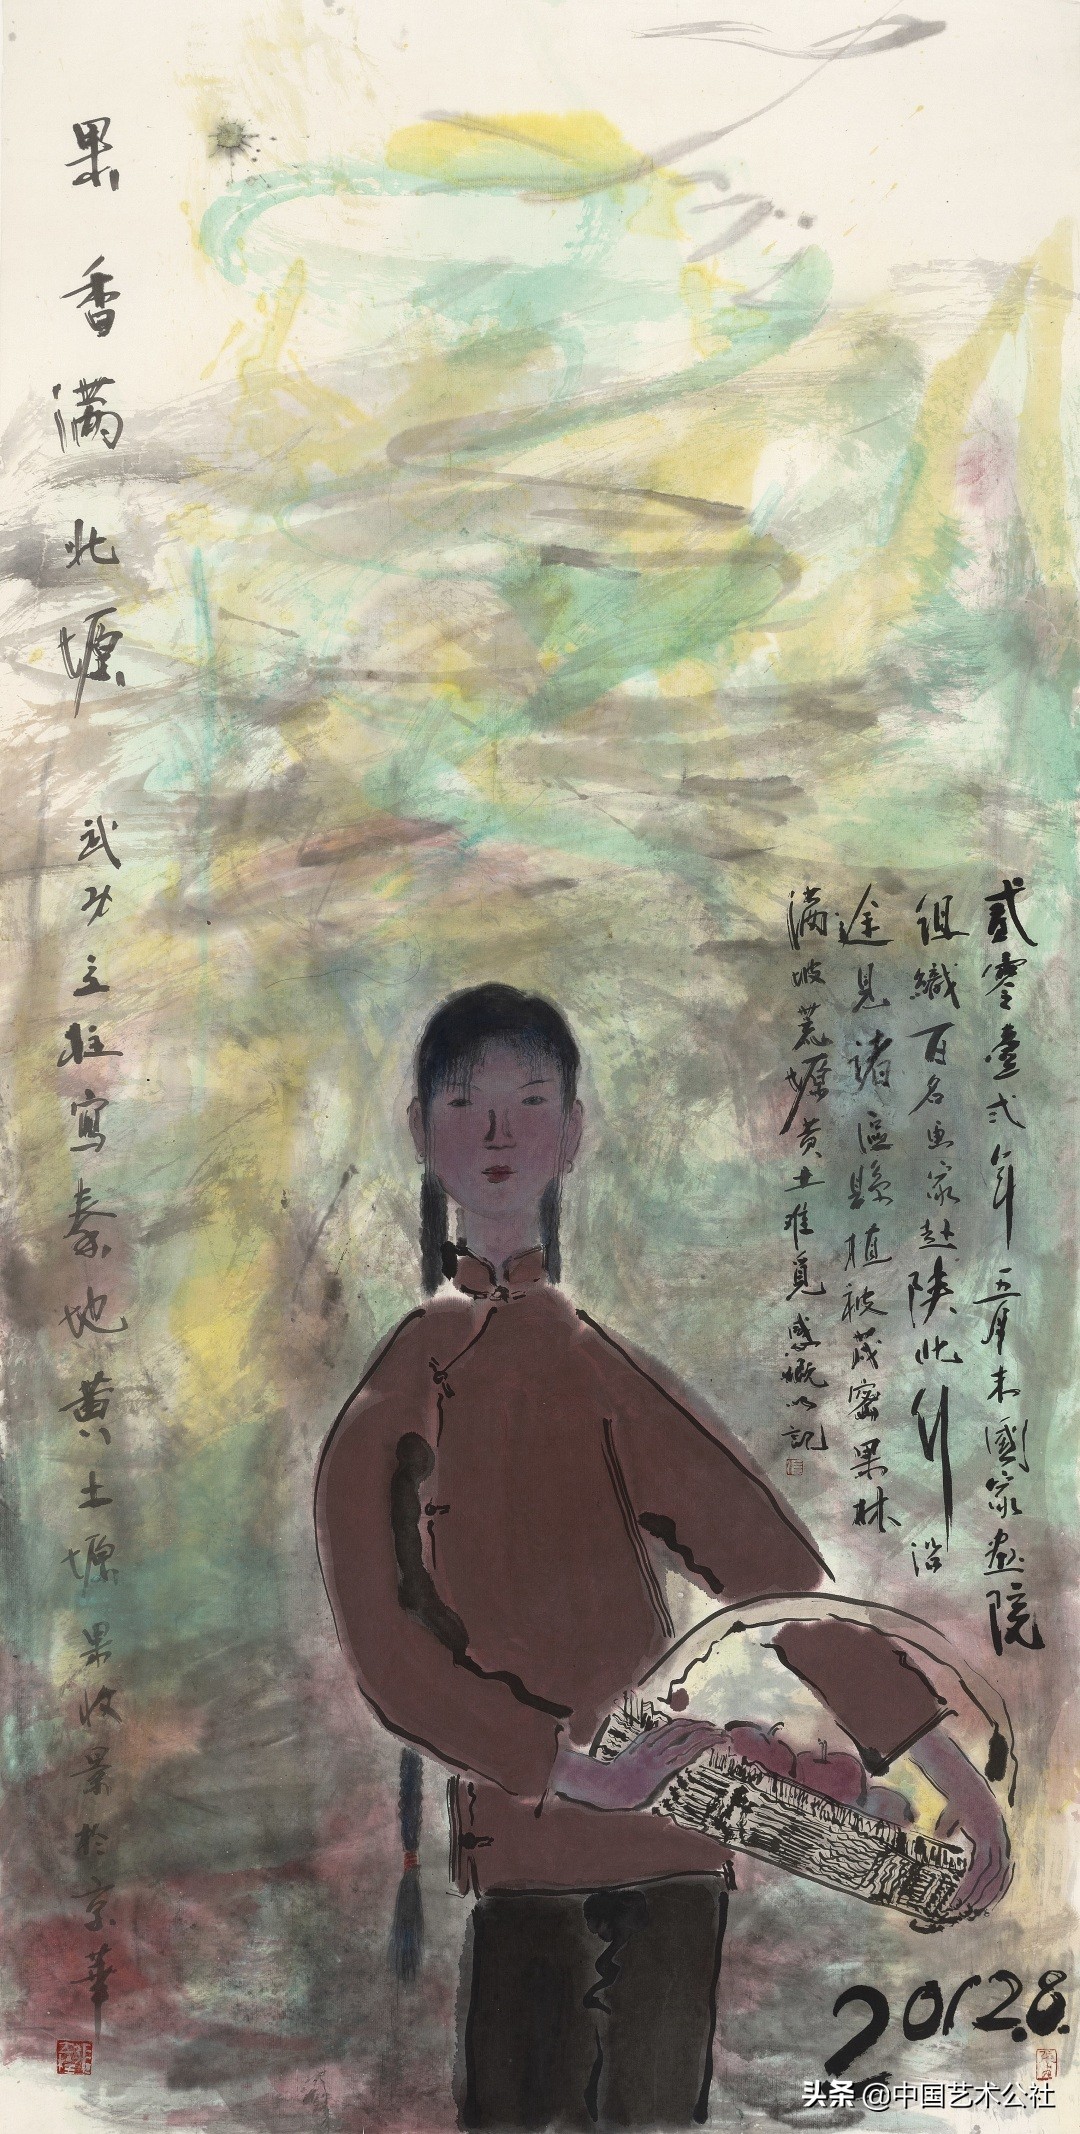 果香满北塬 武功立柱寫秦地黄土塬果收景於京華
貳零壹弍年五月末國家畫院
组織百名画家赴陕北行沿
途見諸區縣植被茂密果林
满坡荒塬黄土难覓感慨以記
2012.8.
头条 @中国艺术公社